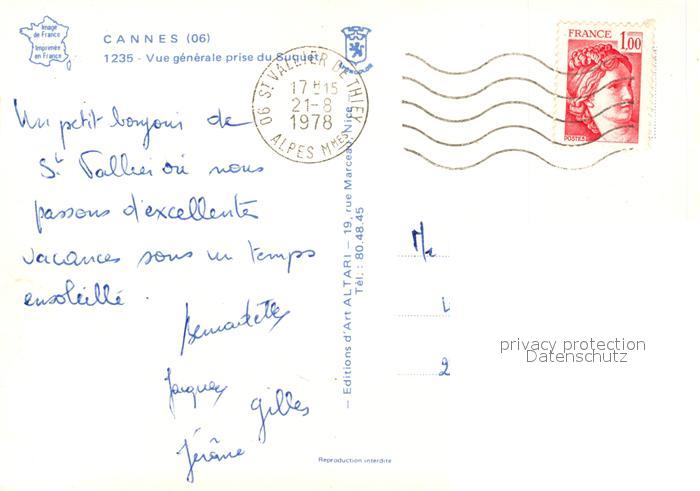 Image
de France
Imprimée
en France
CANNES (06)
1235 - Vue générale prise du Suquet
06 ST VALLIER DE THIEY
17H15
21-8
1978
ALPES MMES
FRANCE
1,00
POSTES
Un petit bonjour de
St Vallier où nous
passons d'excellentes
vacances sous un temps
ensoleillé.
Bernadette
Jacques
Gilles
Jérôme
— Editions d'Art ALTARI — 19, rue Marceau, Nice
Tél.: 80.48.45
2
privacy protection
Datenschutz
Reproduction interdite